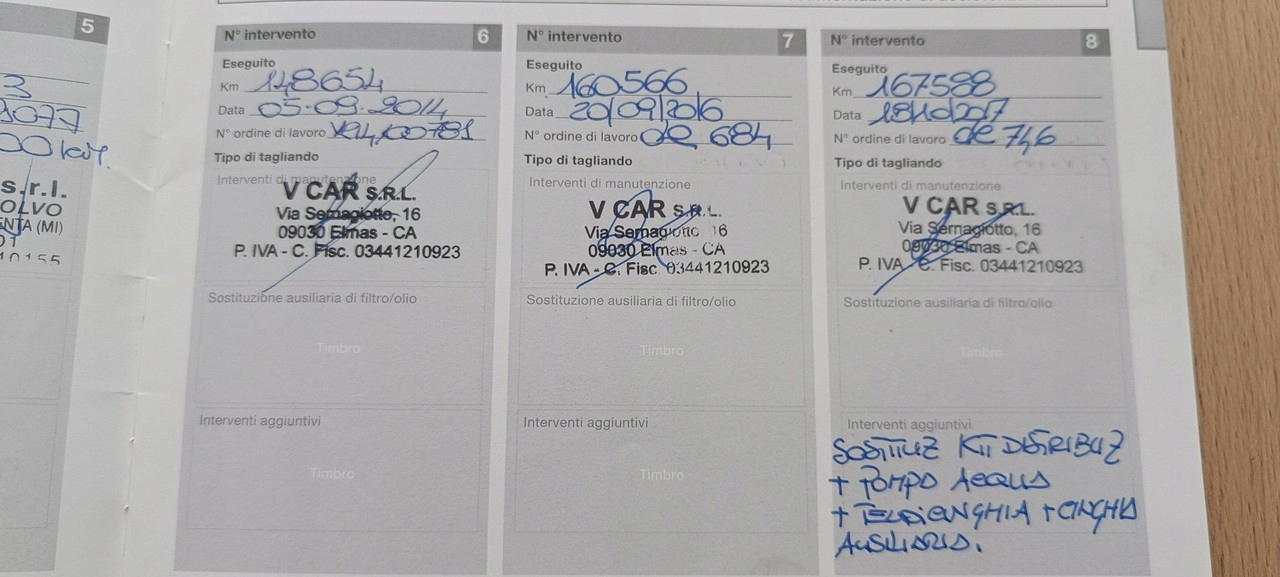 5
3
00 km.
s.r.l.
OLVO
ENTA (MI)
N° intervento 6
Eseguito
Km 148654
Data 05-09-2014
N° ordine di lavoro
Tipo di tagliando
Interventi di manutenzione
V CAR S.R.L.
Via Sernagiotto, 16
09030 Elmas - CA
P. IVA - C. Fisc. 03441210923
Sostituzione ausiliaria di filtro/olio
Timbro
Interventi aggiuntivi
Timbro
N° intervento 7
Eseguito
Km 160566
Data 20/09/2016
N° ordine di lavoro de 684
Tipo di tagliando
Interventi di manutenzione
V CAR S.R.L.
Via Sernagiotto 16
09030 Elmas - CA
P. IVA - C. Fisc. 03441210923
Sostituzione ausiliaria di filtro/olio
Timbro
Interventi aggiuntivi
Timbro
N° intervento 8
Eseguito
Km 167588
Data 18/10/2017
N° ordine di lavoro de 746
Tipo di tagliando
Interventi di manutenzione
V CAR S.R.L.
Via Sernagiotto, 16
09030 Elmas - CA
P. IVA C. Fisc. 03441210923
Sostituzione ausiliaria di filtro/olio
Timbro
Interventi aggiuntivi
SOSTITUZ KIT DISTRIBUZ
+ POMPA ACQUA
+ TENDICINGHIA + CINGHIA
AUSILIARIA.